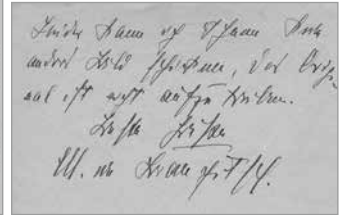 Leider kann ich Ihnen kein
anderes Bild schicken, das Origi-
nal ist nicht aufzutreiben.
Beste Grüße